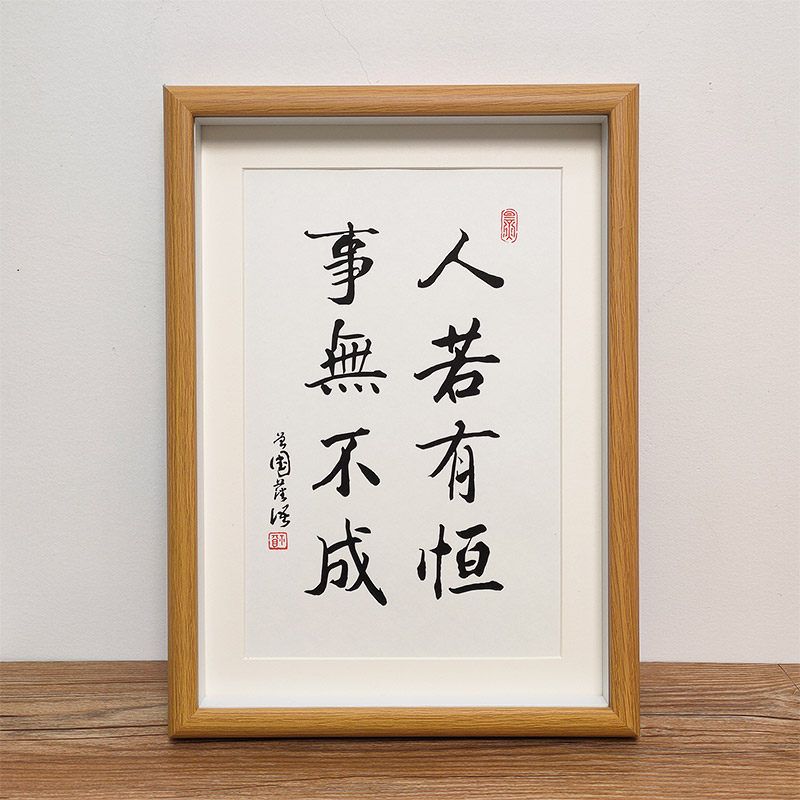 人若有恒
事無不成
曾國藩語